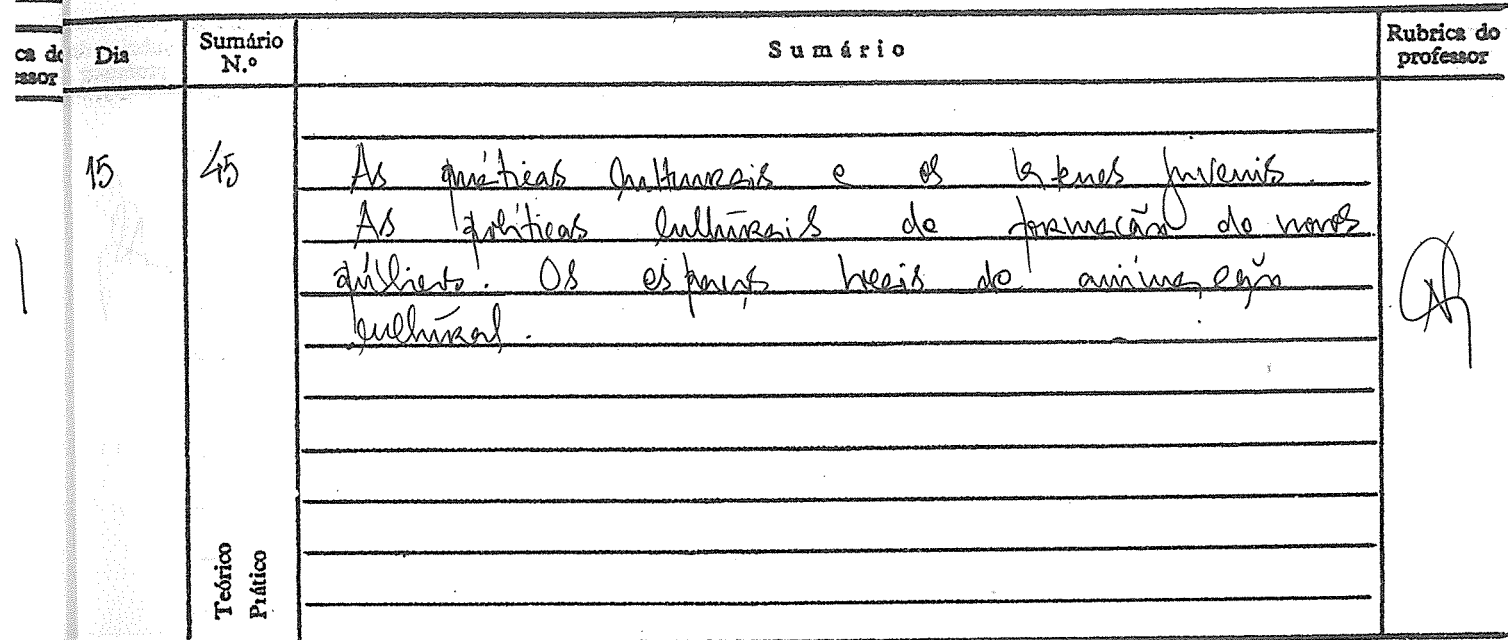 ca do
essor
Dia
Sumário
N.º
Sumário
Rubrica do
professor
15
45
As práticas culturais e os lazeres juvenis.
As políticas culturais de formação de novos
públicos. Os espaços locais de animação
cultural.
Teórico
Prático